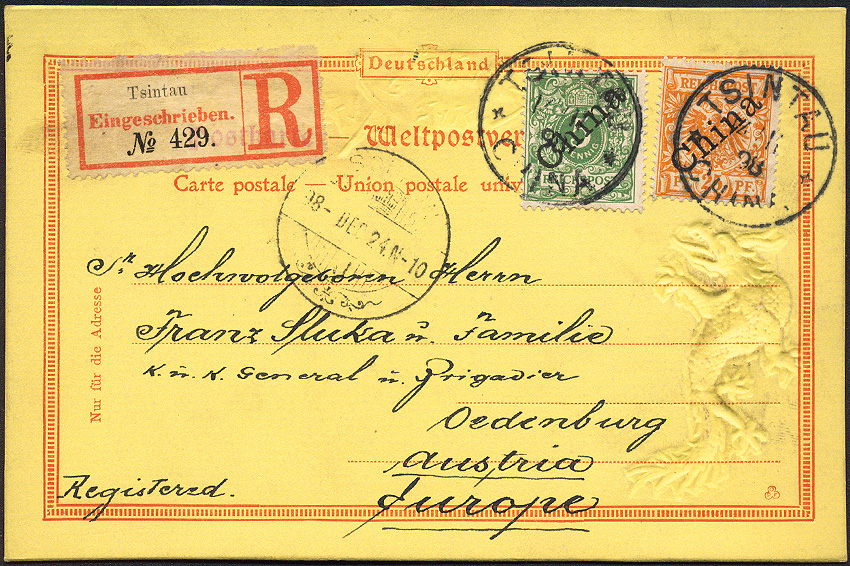 Deutschland
Tsintau
Eingeschrieben.
№ 429.
R
Weltpostver
Carte postale — Union postale univ
China
REICHSPOST
China
TSINTAU
CHINA
98- DEC 24.N-10
Nur für die Adresse
Sr. Hochwolgeboren Herrn
Franz Sluka u. Familie
K. u. K. General u. Brigadier
Oedenburg
Austria
Europe
Registered.